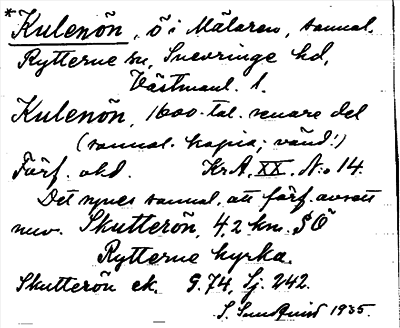 *Kulenön, ö i Mälaren, sannol.
Rytterne sn, Snevringe hd,
Västmanl. l.
Kulenön, 1600-tal. senare del
(sannol. kopia; vänd!)
Förf. okd. Kr.A. XX. N:o 14.
Det synes sannol. att förf. avsett
nuv. Skutterön, 4,2 km. SÖ
Rytterne kyrka.
Skutterön ek. G.74, Sj. 242.
S. Sundquist 1935.